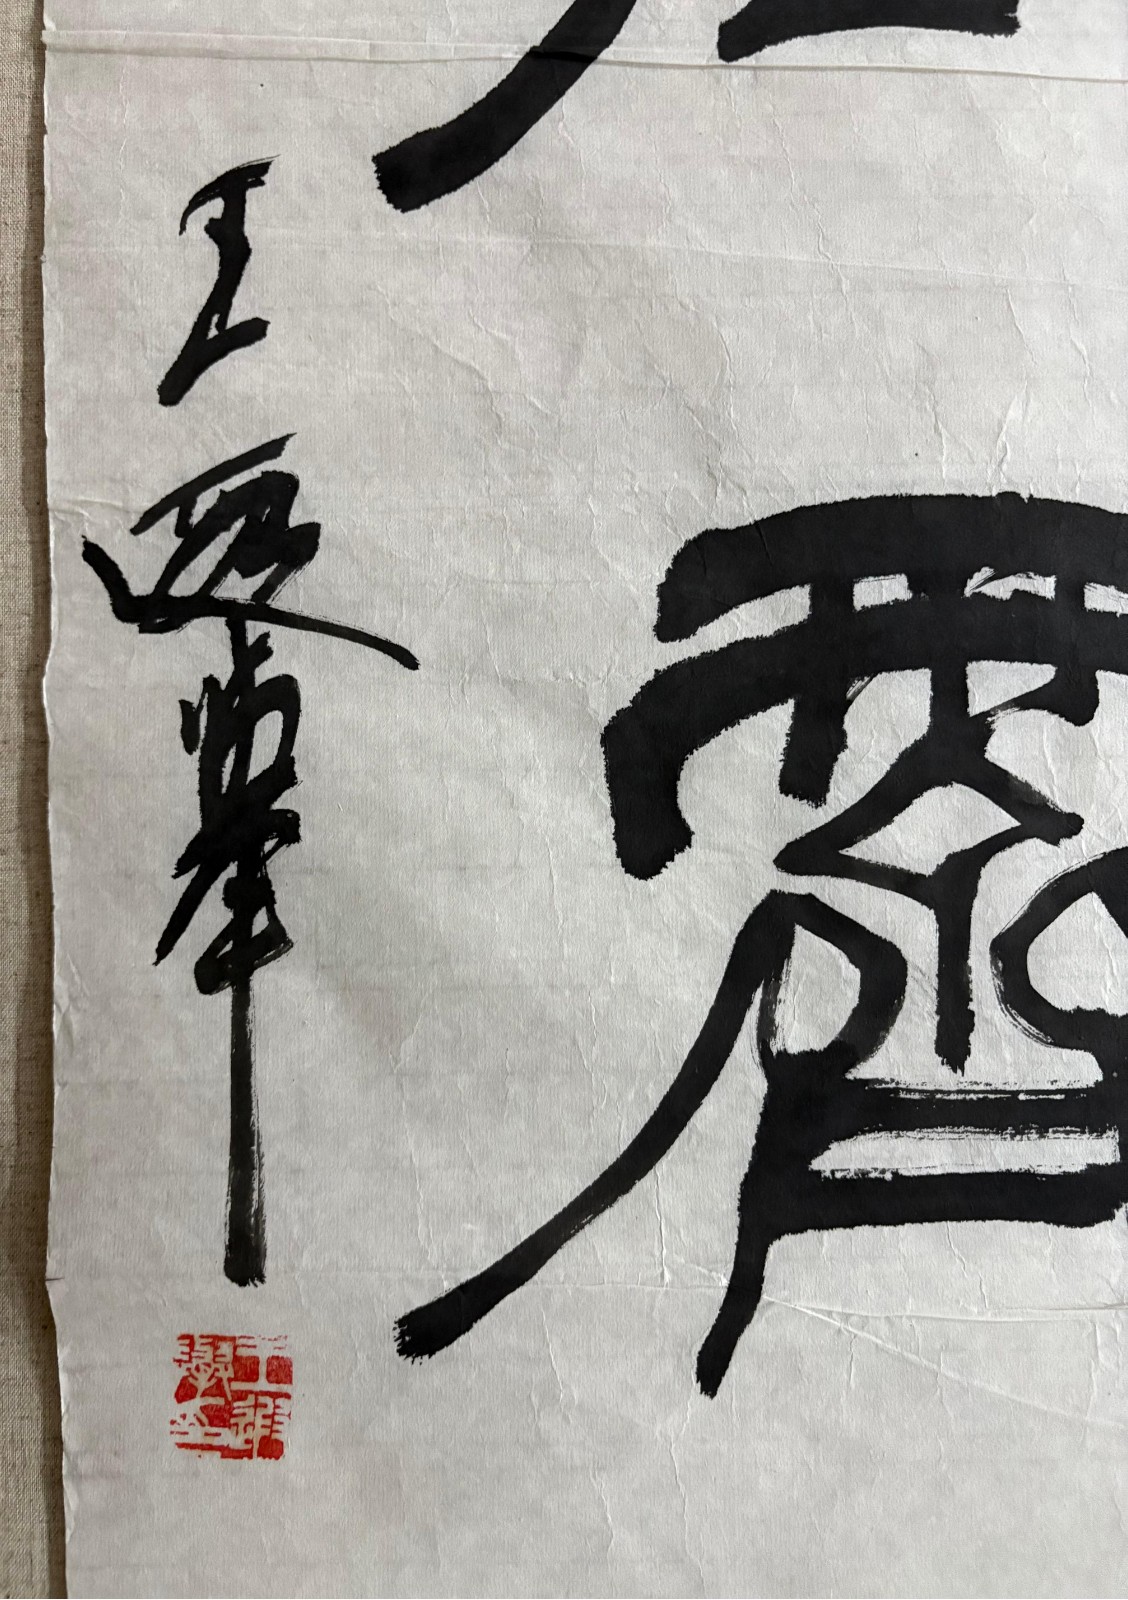 霽
王遐舉
王遐舉